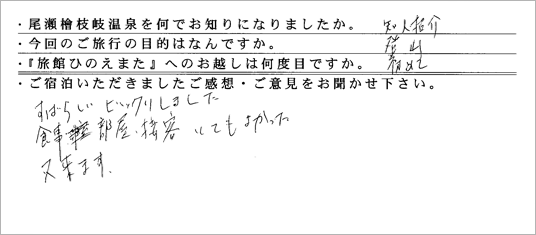 ・尾瀬檜枝岐温泉を何でお知りになりましたか。 知人紹介
・今回のご旅行の目的はなんですか。 登山
・『旅館ひのえまた』へのお越しは何度目ですか。 初めて
・ご宿泊いただきましたご感想・ご意見をお聞かせ下さい。
すばらしいビックリしました
食事 部屋、接客 とてもよかった
又来ます。